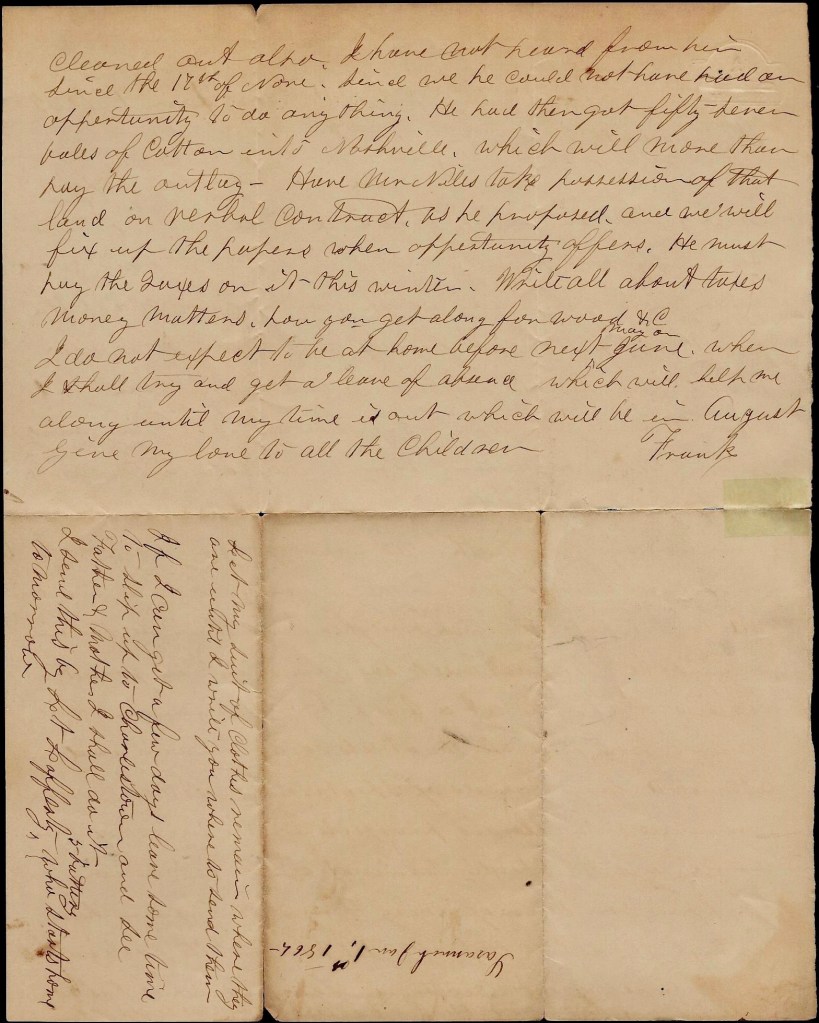 cleaned out also. I have not heard from him
since the 17th of Nove. since we he could not have had an
opportunity to do anything. He had then got fifty-seven
bales of Cotton into Nashville. which will more than
pay the outlay – Have Mr Niles take possession of that
land on verbal contract, as he proposed, and we will
fix up the papers when opportunity offers. He must
pay the Taxes on it this winter. Write all about taxes
Money Matters, how you get along for wood &C
May or
I do not expect to be at home before next June. when
I shall try and get a leave of absence which will help me
along until my time is out which will be in August
Give My love to all the Children
Frank
Let My suit of Clothes remain where they
are until I write you where to send them
If I can get a few days leave some time
To slip up to Charlestown and see
Father & Mother I shall do it
I send this by Lt Lafferty who starts home
tomorrow
Savannah Jan 1st, 1865